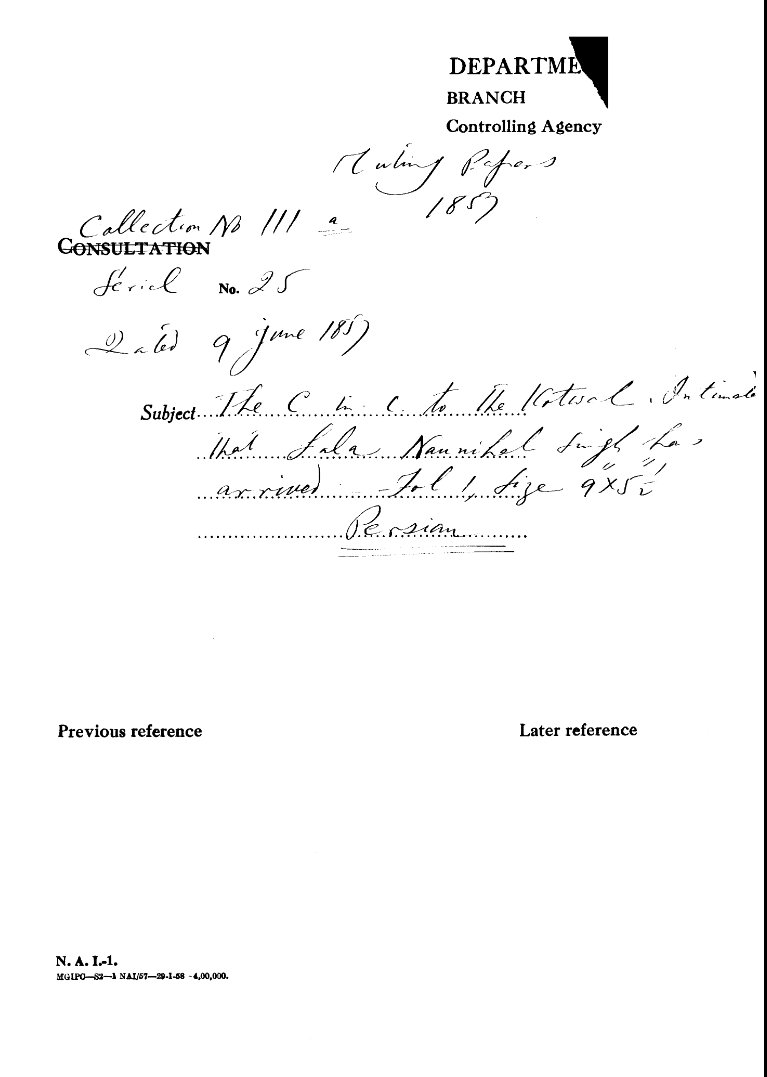 DEPARTME
BRANCH
Controlling Agency
Mutiny Papers
1857
Collection No 111 a
CONSULTATION
Serial No. 25
Dated 9 June 1857
Subject The C in C to the Kotwal. Intimate
that Lala Naunihal Singh has
arrived – Fol 1, Size 9"×5½"
Persian
Previous reference
Later reference
N. A. I.-1.
MGIPC—S2—1 NAI/57—29-1-58 -4,00,000.